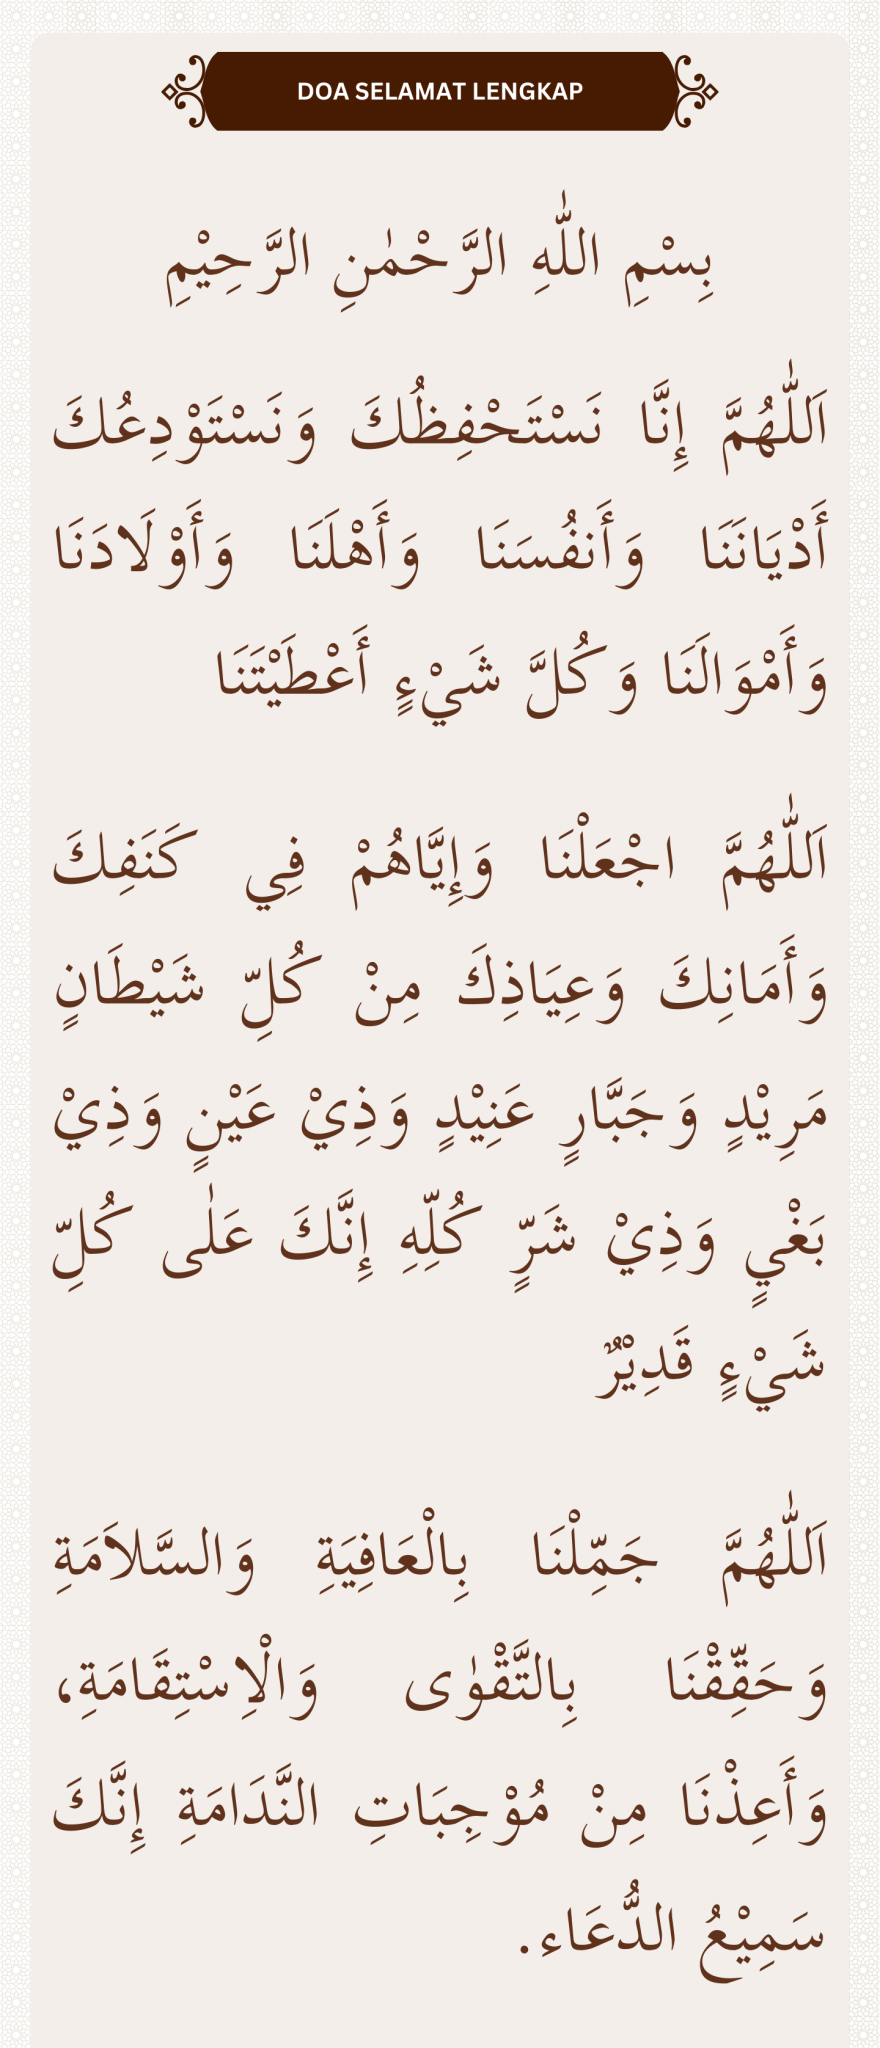 DOA SELAMAT LENGKAP
بِسْمِ اللّٰهِ الرَّحْمٰنِ الرَّحِيْمِ
اَللّٰهُمَّ إِنَّا نَسْتَحْفِظُكَ وَنَسْتَوْدِعُكَ
أَدْيَانَنَا وَأَنفُسَنَا وَأَهْلَنَا وَأَوْلَادَنَا
وَأَمْوَالَنَا وَكُلَّ شَيْءٍ أَعْطَيْتَنَا
اَللّٰهُمَّ اجْعَلْنَا وَإِيَّاهُمْ فِي كَنَفِكَ
وَأَمَانِكَ وَعِيَاذِكَ مِنْ كُلِّ شَيْطَانٍ
مَرِيْدٍ وَجَبَّارٍ عَنِيْدٍ وَذِيْ عَيْنٍ وَذِيْ
بَغْيٍ وَذِيْ شَرٍّ كُلِّهِ إِنَّكَ عَلٰى كُلِّ
شَيْءٍ قَدِيْرٌ
اَللّٰهُمَّ جَمِّلْنَا بِالْعَافِيَةِ وَالسَّلاَمَةِ
وَحَقِّقْنَا بِالتَّقْوٰى وَالْاِسْتِقَامَةِ،
وَأَعِذْنَا مِنْ مُوْجِبَاتِ النَّدَامَةِ إِنَّكَ
سَمِيْعُ الدُّعَاءِ.